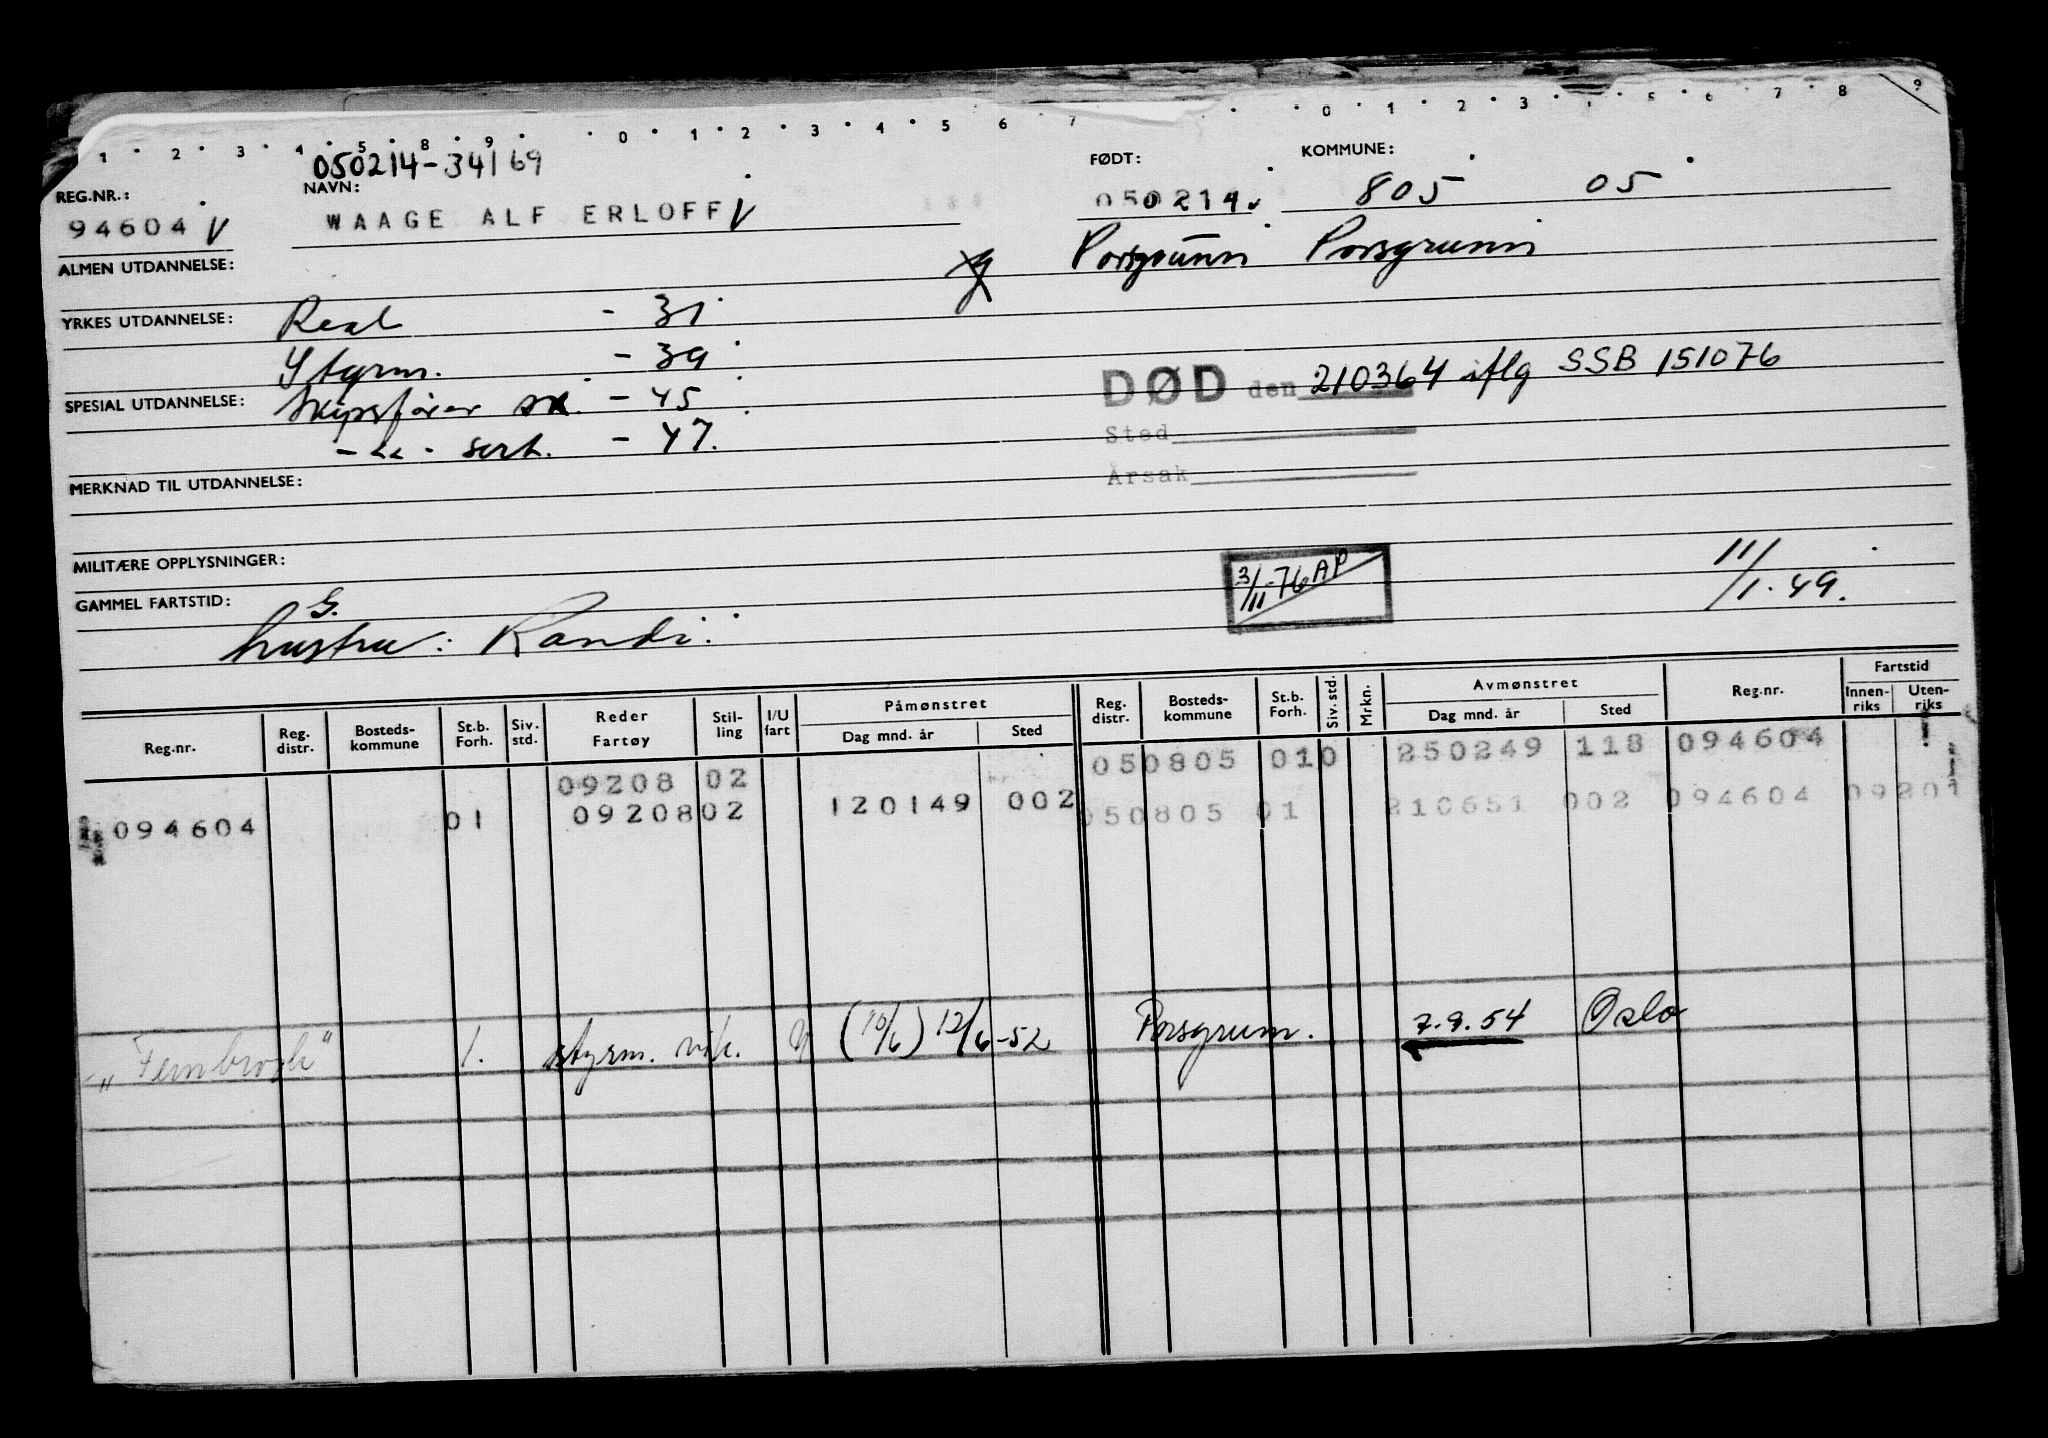 1 2 3 4 5 8 9 0 1 2 3 4 5 6 7 0 1 2 3 5 6 7 8 9
050214-34169
REG.NR.: NAVN: FØDT: KOMMUNE:
94604 V WAAGE ALF ERLOFF V 050214 805 05
ALMEN UTDANNELSE: Porsgrunn Porsgrunn
YRKES UTDANNELSE: Real - 31
Styrm. - 39
DØD den 210364 iflg SSB 151076
SPESIAL UTDANNELSE: Skipsfører - 45
Sted
-"- sert. - 47.
Årsak
MERKNAD TIL UTDANNELSE:
MILITÆRE OPPLYSNINGER:
3/11-76 AP
11/1.49.
GAMMEL FARTSTID: G.
hustru: Randi
Reg.nr. Reg. distr. Bosteds-kommune St.b. Forh. Siv. std. Reder Fartøy Stil-ling I/U fart Påmønstret Dag mnd. år Sted Reg. distr. Bosteds-kommune St.b. Forh. Siv. std. Mrkn. Avmønstret Dag mnd. år Sted Reg.nr. Fartstid Innen-riks Uten-riks
09208 02 050805 010 250249 118 094604
094604 01 09208 02 120149 002 050805 01 210651 002 094604 09201
"Fernbrook" 1. styrm. (10/6) 12/6-52 Porsgrunn. 7.9.54 Oslo